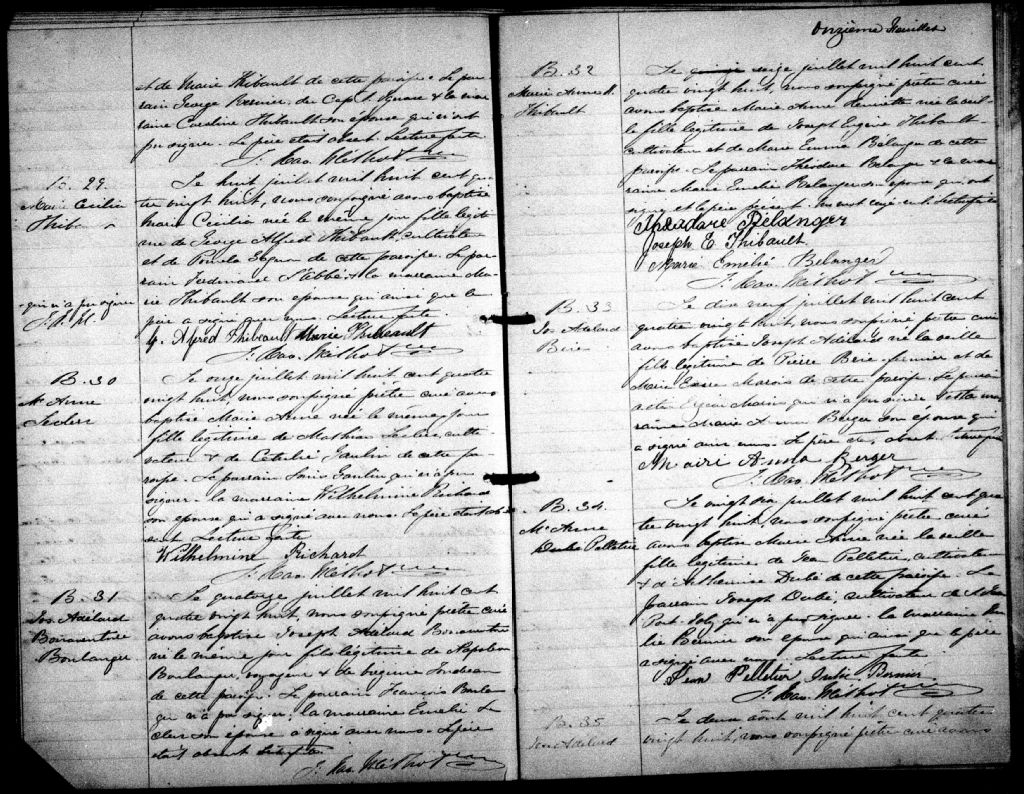 et de Marie Thibault de cette paroisse. Le par-
rain George Bernier de Cap St Ignace & la mar-
raine Caroline Thibault son épouse qui n'ont
pu signer. Le père était absent. Lecture faite
J. Bao. Méthot
B. 29
Marie Cecilia
Thibau
Le huit juillet mil huit cent qua-
tre vingt huit, nous soussigné avons baptisé
Marie Cecilia née le même jour fille legiti-
me de George Alfred Thibault, cultivateur
et de de cette paroisse. Le par-
rain Ferdinand & la marraine Ma-
rie Thibault son épouse qui ainsi que le
père a signé avec nous. Lecture faite.
qui n'a pu signer
J. B. M.
G. Alfred Thibault Marie Thibault
J. Bao. Méthot
B. 30
Me Anne
Leclerc
Le onze juillet mil huit cent quatre
vingt huit, nous soussigné prêtre curé avons
baptisé Marie Anne née le même jour
fille legitime de Mathias Leclerc, culti-
vateur & de Gaulin de cette pa-
roisse. Le parrain Louis Gaulin qui n'a pu
signer. la marraine Wilhelmine Richard
son epouse qui a signé avec nous. Le père etait ab-
sent Lecture faite
Wilhelmine Richard
J. Bao. Méthot
B. 31
Jos. Adélard
Bonaventure
Boulanger
Le quatorze juillet mil huit cent
quatre vingt huit, nous soussigné prêtre curé
avons baptisé Joseph Adélard Bonaventure
né le même jour fils legitime de Napoléon
Boulanger, voyageur & de
de cette paroisse. Le parrain François Boulan-
qui n'a pu signer; la marraine Emelie Le
clerc son epouse a signé avec nous. Le père
etait absent
J. Bao. Méthot
Onzième Feuillet
B. 32
Marie Anne H.
Thibault
Le seize juillet mil huit cent
quatre vingt huit, nous soussigné prêtre curé
avons baptisé Marie Anne Henriette née la veille
fille legitime de Joseph Eugène Thibault
cultivateur et de Marie Emma Bélanger de cette
paroisse. Le parrain Théodore Belanger & la mar
raine Marie Emelie Belanger son epouse qui ont
signé et le père présent.
Theodore Belanger
Joseph E. Thibault
Marie Emélie Belanger
J. Bao. Méthot
B. 33
Jos. Adélard
Brie
Le dix neuf juillet mil huit cent
quatre vingt huit, nous soussigné prêtre curé
avons baptisé Joseph Adélard né la veille
fils legitime de Pierre Brie fermier et de
Marie Marois de cette paroisse. Le parrain
Marois qui n'a pu signer et la mar
raine Marie Anna Berger son épouse qui
a signé avec nous. Le père etait absent Lecture faite
Mairi Anna Berger
J. Bao. Méthot
B. 34
Me Anne
Dubé Pelletier
Le vingt six juillet mil huit cent qua
tre vingt huit, nous soussigné prêtre curé
avons baptisé Marie Anne née la veille
fille legitime de Jean Pelletier, cultivateur
& d'Arthemise Dubé de cette paroisse. Le
parrain Joseph Dubé, cultivateur de St Jean
Port-Joly qui n'a pu signer. la marraine Ju
lie Bernier son épouse qui ainsi que le père
a signé avec nous Lecture faite
Jean Pelletier Julie Bernier
J. Bao. Méthot
B. 35
Jos. Adélard
Le deux août mil huit cent quatre
vingt huit, nous soussigné prêtre curé avons